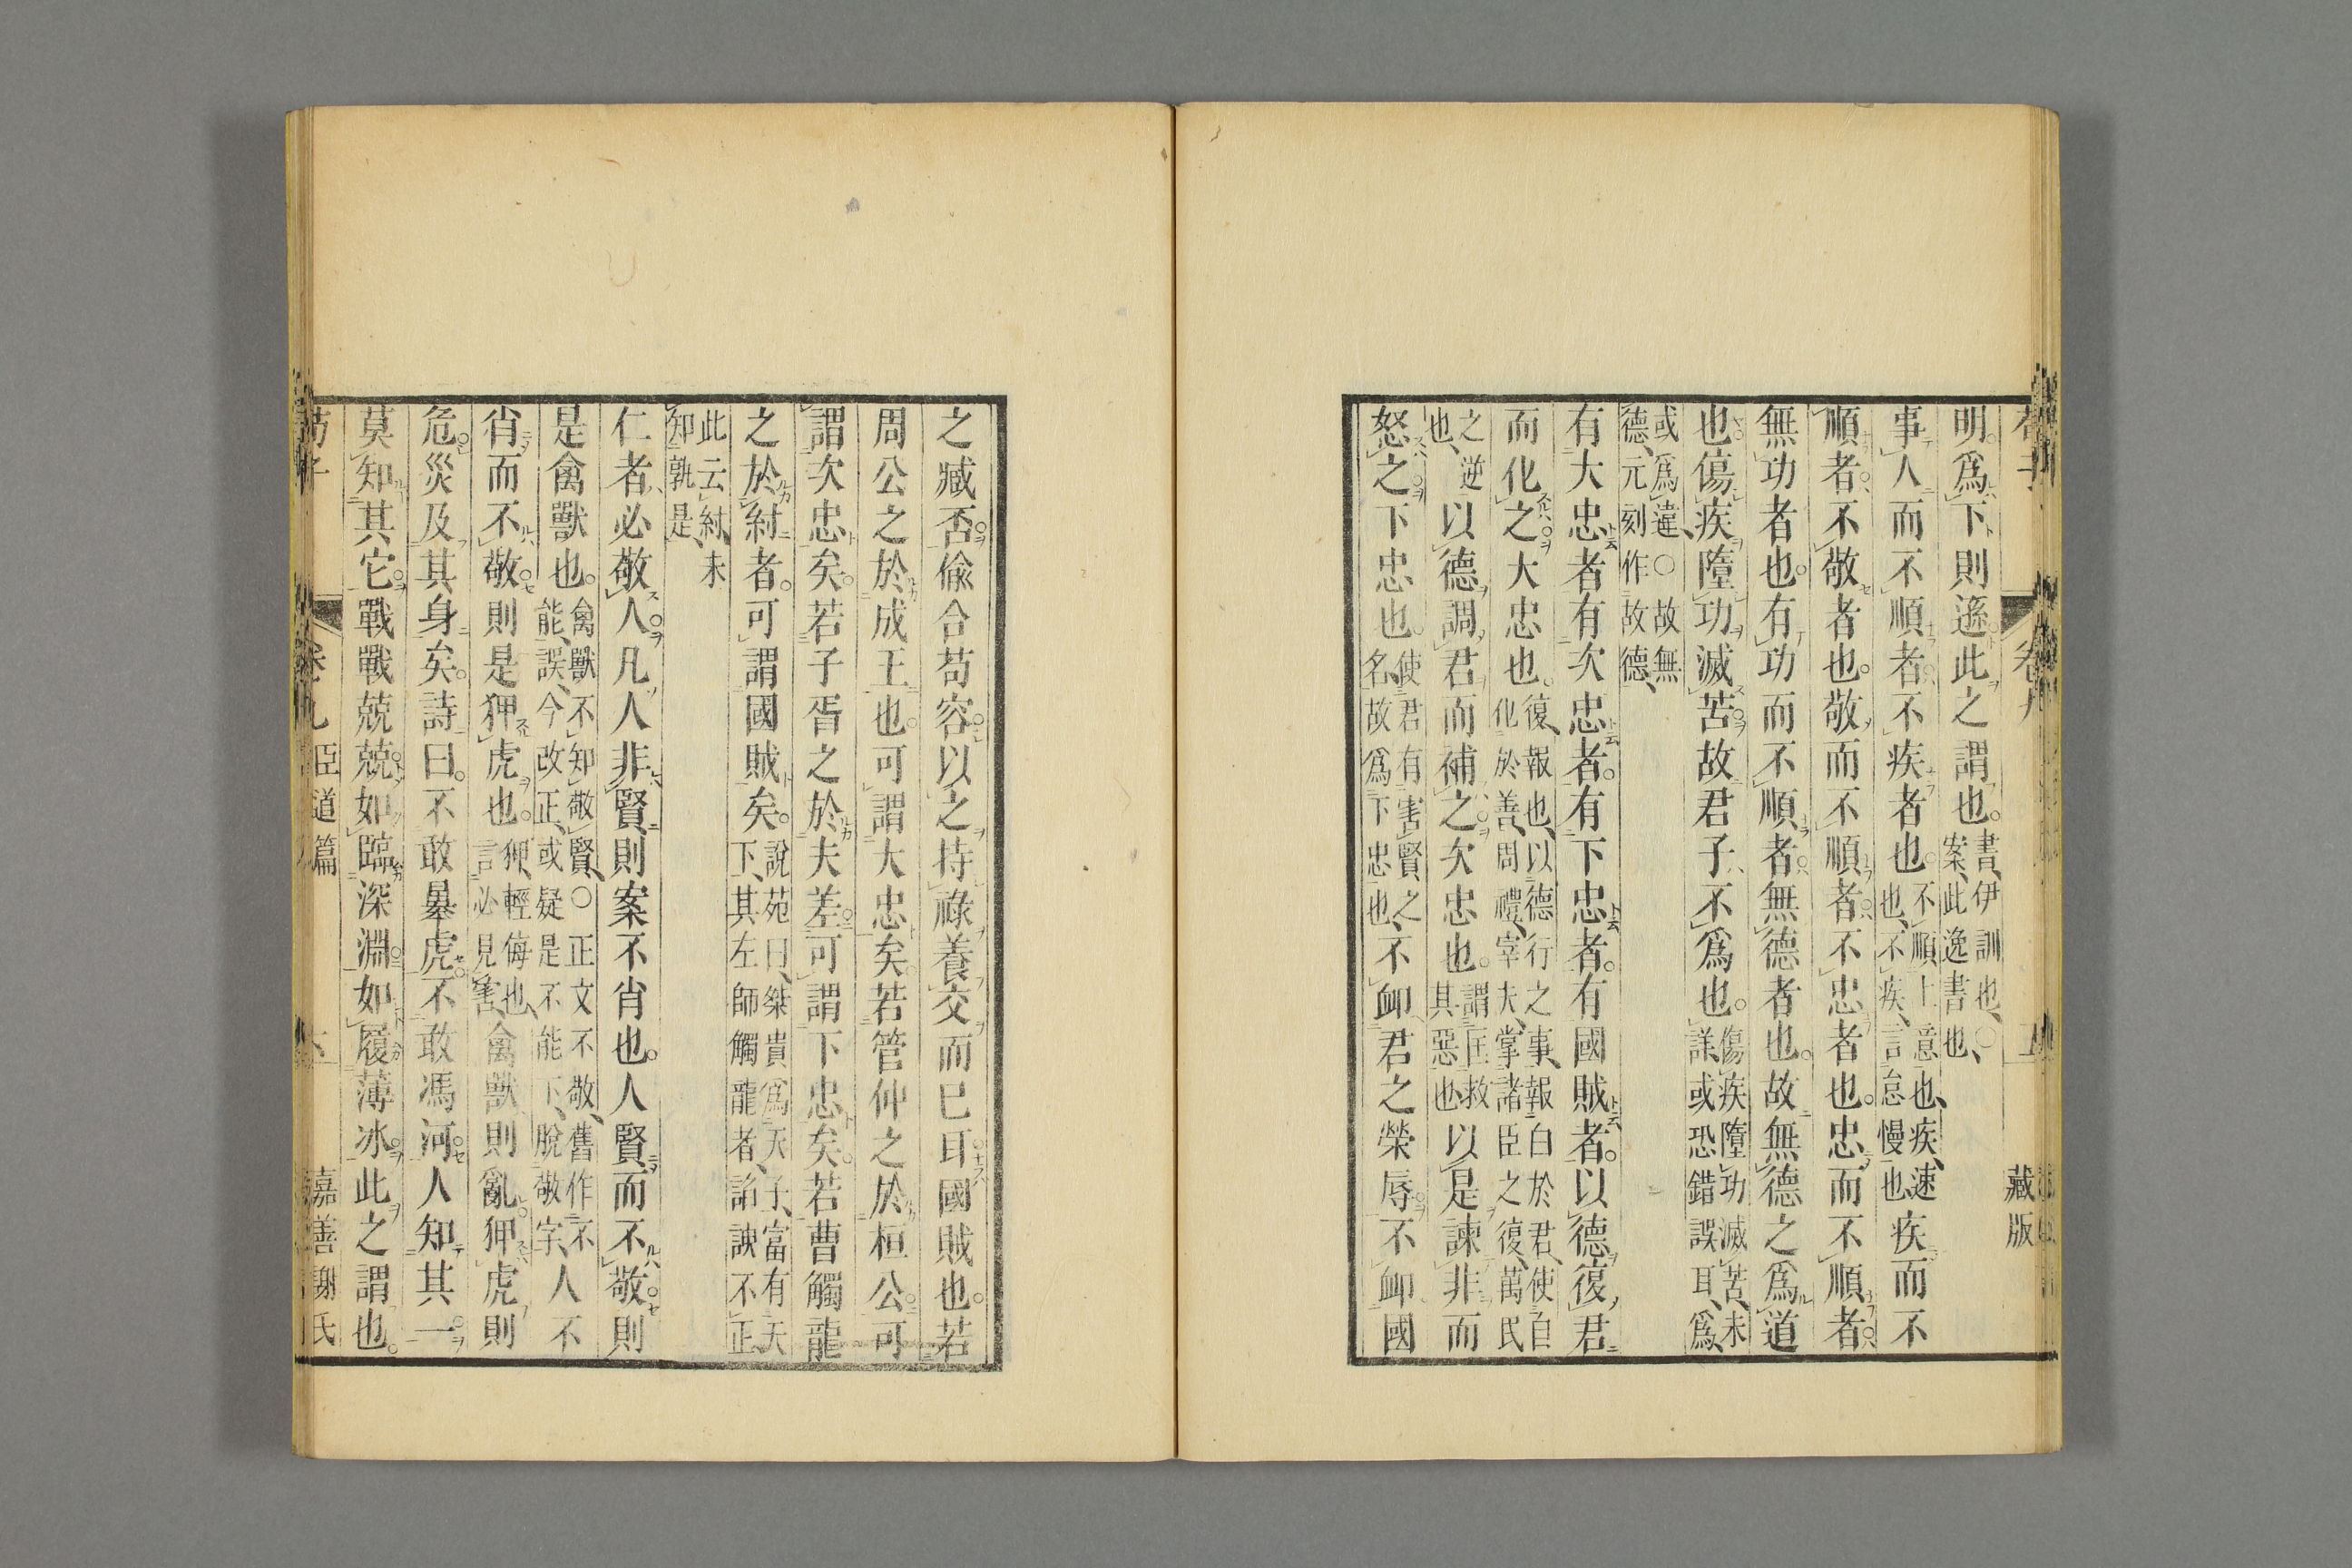 荀子
卷九
五
藏版
明爲下則遜此之謂也書伊訓也○案此逸書也
事人而不順者不疾者也不順上意也疾速也不疾言怠慢也疾而不
順者不敬者也敬而不順者不忠者也忠而不順者
無功者也有功而不順者無德者也故無德之爲道
也傷疾墮功滅苦故君子不爲也傷疾墮功滅苦未詳或恐錯誤耳爲
或爲違○故無德元刻作故德
有大忠者有次忠者有下忠者有國賊者以德復君
而化之大忠也復報也以德行之事報白於君使自化於善周禮宰夫掌諸臣之復萬民
之逆也以德調君而補之次忠也謂匡救其惡也以是諫非而
怒之下忠也使君有害賢之名故爲下忠也不卹君之榮辱不卹國
之臧否偸合苟容以之持祿養交而已耳國賊也若
周公之於成王也可謂大忠矣若管仲之於桓公可
謂次忠矣若子胥之於夫差可謂下忠矣若曹觸龍
之於紂者可謂國賊矣說苑曰桀貴爲天子富有天下其左師觸龍者諂諛不正
此云紂未知孰是
仁者必敬人凡人非賢則案不肖也人賢而不敬則
是禽獸也禽獸不知敬賢○正文不敬舊作不能誤今改正或疑是不能下脫敬字人不
肖而不敬則是狎虎也狎輕侮也言必見害禽獸則亂狎虎則
危災及其身矣詩曰不敢暴虎不敢馮河人知其一
莫知其它戰戰兢兢如臨深淵如履薄冰此之謂也
荀子
卷九
臣道篇
六
嘉善謝氏